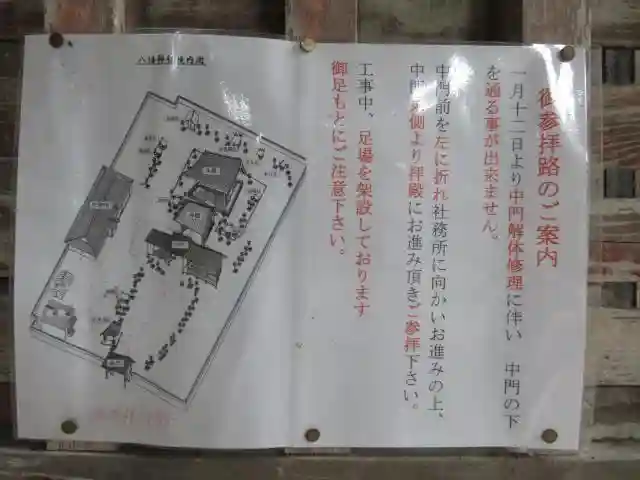 御参拝路のご案内
一月十二日より中門解体修理に伴い 中門の下
を通る事が出来ません。
中門前を左に折れ社務所に向かいお進みの上、
側より拝殿にお進み頂きご参拝下さい。
工事中、足場を架設しております
御足もとにご注意下さい。